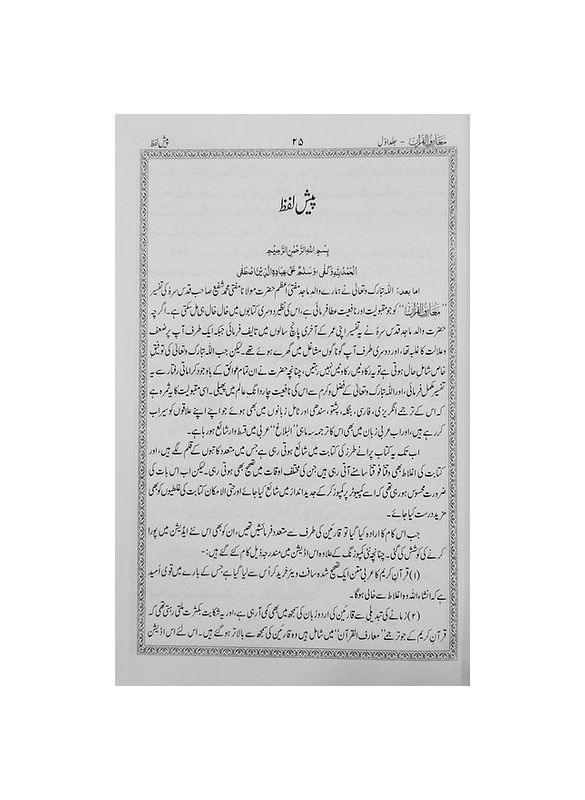 معارف القرآن - جلد اوّل ۲۵ پیش لفظ
پیش لفظ
بِسْمِ اللهِ الرَّحْمٰنِ الرَّحِيْمِ
اَلْحَمْدُ لِلّٰهِ وَكَفٰى، وَسَلٰمٌ عَلٰى عِبَادِهِ الَّذِيْنَ اصْطَفٰى
اما بعد: اللہ تبارک وتعالیٰ نے ہمارے والد ماجد مفتی اعظم حضرت مولانا مفتی محمد شفیع صاحب قدس سرہٗ کی تفسیر
"معارف القرآن" کو جو مقبولیت اور نافعیت عطا فرمائی ہے، اس کی نظیر دوسری کتابوں میں خال خال ہی مل سکتی ہے۔ اگرچہ
حضرت والد ماجد قدس سرہٗ نے یہ تفسیر اپنی عمر کے آخری پانچ سالوں میں تالیف فرمائی جبکہ ایک طرف آپ پر ضعف
وعلالت کا غلبہ تھا، اور دوسری طرف آپ گوناگوں مشاغل میں گھرے ہوئے تھے۔ لیکن جب اللہ تبارک وتعالیٰ کی توفیق
خاص شامل حال ہوتی ہے تو یہ رکاوٹیں رکاوٹیں نہیں رہتیں، چنانچہ حضرت نے ان تمام عوائق کے باوجود کراماتی رفتار سے یہ
تفسیر مکمل فرمائی، اور اللہ تبارک وتعالیٰ کے فضل وکرم سے اس کی نافعیت چار دانگ عالم میں پھیلی۔ اسی مقبولیت کا یہ ثمرہ ہے
کہ اس کے ترجمے انگریزی، فارسی، بنگلہ، پشتو، سندھی اور تامل زبانوں میں بھی ہوئے جو اپنے اپنے علاقوں کو سیراب
کر رہے ہیں، اور اب عربی زبان میں بھی اس کا ترجمہ سہ ماہی "البلاغ" عربی میں قسط وار شائع ہو رہا ہے۔
اب تک یہ کتاب پرانے طرز کی کتابت میں شائع ہوتی رہی ہے جس میں متعدد کاتبوں کے قلم لگے ہیں، اور
کتابت کی اغلاط بھی وقتاً فوقتاً سامنے آتی رہی ہیں جن کی مختلف اوقات میں تصحیح بھی ہوتی رہی۔ لیکن اب اس بات کی
ضرورت محسوس ہو رہی تھی کہ اسے کمپیوٹر پر کمپوز کر کے جدید انداز میں شائع کیا جائے اور حتی الامکان کتابت کی غلطیوں کو بھی
مزید درست کیا جائے۔
جب اس کام کا ارادہ کیا گیا تو قارئین کی طرف سے متعدد فرمائشیں تھیں، ان کو بھی اس نئے ایڈیشن میں پورا
کرنے کی کوشش کی گئی۔ چنانچہ نئی کمپوزنگ کے علاوہ اس اڈیشن میں مندرجہ ذیل کام کئے گئے ہیں:-
(۱) قرآن کریم کا عربی متن ایک تصحیح شدہ سافٹ ویئر خرید کر اُس سے لیا گیا ہے جس کے بارے میں قوی اُمید
ہے کہ انشاء اللہ وہ اغلاط سے خالی ہوگا۔
(۲) زمانے کی تبدیلی سے قارئین کی اردو زبان کی سمجھ میں بھی کمی آرہی ہے، اور یہ شکایت بکثرت ملتی رہتی تھی کہ
قرآن کریم کے جو ترجمے "معارف القرآن" میں شامل ہیں وہ قارئین کی سمجھ سے بالاتر ہو گئے ہیں۔ اس لئے اس اڈیشن